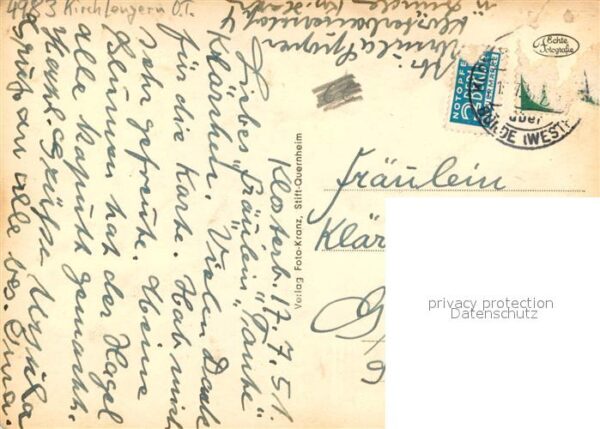 4983 Kirchlengern O.T.
Abs.
Ursula
Klosterbauerschaft
Echte
Fotografie
NOTOPFER
2 BERLIN
STEUERMARKE
über
BÜNDE (WESTF
Klosterb. 17.7.51.
Liebes "Fräulein" "Tante"
Klärchen. Vielen Dank
für die Karte. Hab mich
sehr gefreute. Meine
Blumen hat der Hagel
alle kaputt gemacht.
Herzl. Grüße Ursula
Gruß an alle bes. Oma.
Verlag Foto-Kranz, Stift-Quernheim
Fräulein
Klär
privacy protection
Datenschutz